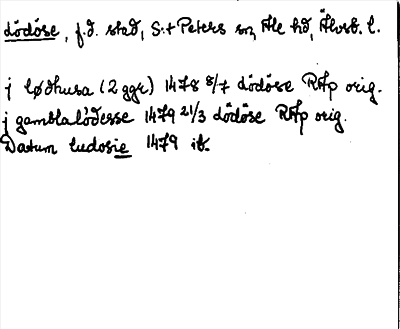 Lödöse, f.d. stad, S:t Peters sn, Ale hd, Älvsb. l.
j lødhusa (2 ggr) 1478 8/7 Lödöse RAp orig.
j gamblalödesse 1479 21/3 Lödöse RAp orig.
Datum ludosie 1479 ib.